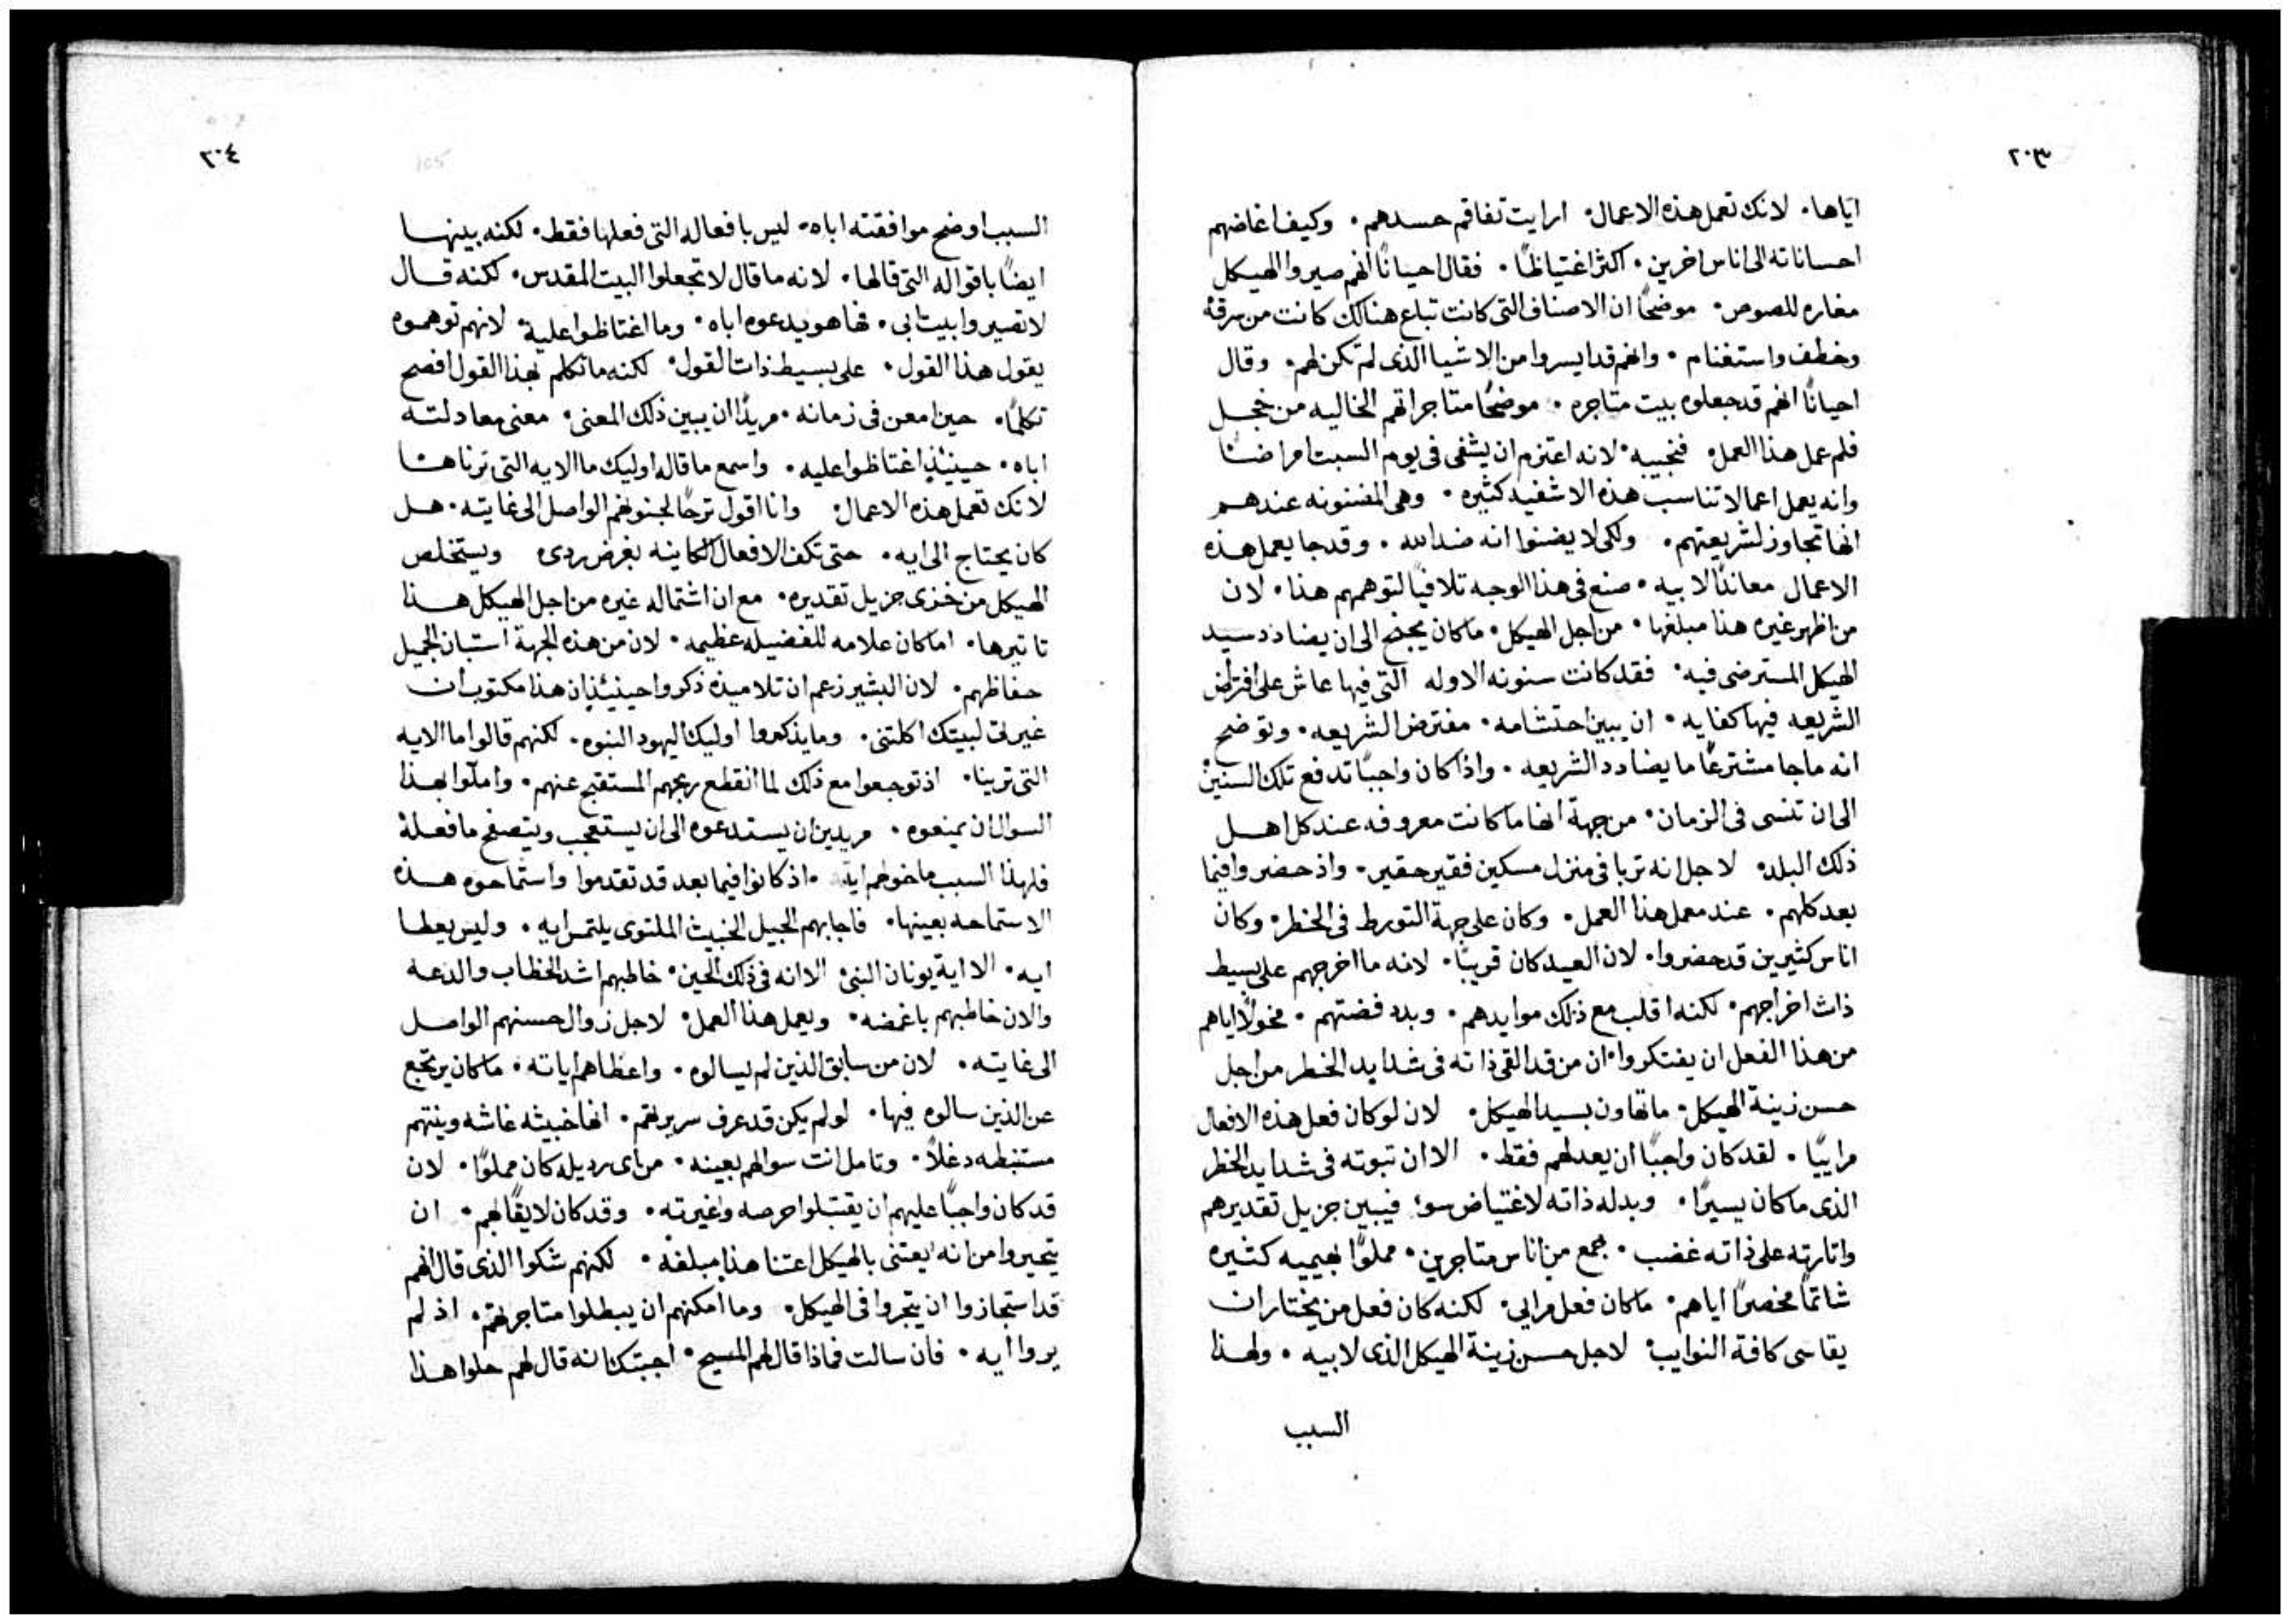 ٢٠٣
اياها. لانك تعمل هذه الاعمال. ارايت تفاقم حسدهم. وكيف اغاضهم
احساناته الى اناس اخرين. اكثر اغتياظًا. فقال احيانًا انهم صيروا الهيكل
مغاره للصوص. موضحًا ان الاصناف التى كانت تباع هنالك كانت من سرقة
وخطف واستغنام. وانهم قد ايسروا من الاشيا الذى لم تكن لهم. وقال
احيانًا انهم قد جعلوه بيت متاجره. موضحًا متاجراتهم الخاليه من خجل
فلم عمل هذا العمل. فنجيبه. لانه اعتزم ان يشفى فى يوم السبت امراضًا
وانه يعمل اعمالا تناسب هذه الاشفيه كثيره. وهى المضنونه عندهم
انها تجاوز لشريعتهم. ولكى لا يضنوا انه ضد الله. وقد جا يعمل هذه
الاعمال معاندًا لابيه. صنع فى هذا الوجه تلافيًا لتوهمهم هذا. لان
من اظهر غيره هذا مبلغها. من اجل الهيكل. ما كان يجنح الى ان يضادد سيد
الهيكل المسترضى فيه. فقد كانت سنونه الاوله التى فيها عاش على افتراض
الشريعه فيها كفايه. ان يبين احتشامه. مفترض الشريعه. وتوضح
انه ما جا مشترعًا ما يضادد الشريعه. واذا كان واجبًا تدفع تلك السنين
الى ان تنسى فى الزمان. من جهة انها ما كانت معروفه عند كل اهل
ذلك البلد. لاجل انه تربا فى منزل مسكين فقير حقير. واذ حضروا فيما
بعد كلهم. عند معمل هذا العمل. وكان على جهة التورط فى الخطر. وكان
اناس كثيرين قد حضروا. لان العيد كان قريبًا. لانه ما اخرجهم على بسيط
ذات اخراجهم. لكنه اقلب مع ذلك موايدهم. وبدد فضتهم. مخولًا اياهم
من هذا الفعل ان يفتكروا. ان من قد القى ذاته فى شدايد الخطر من اجل
حسن زينة الهيكل. ما تهاون بسيد الهيكل. لان لو كان فعل هذه الافعال
مراييًا. لقد كان واجبًا ان يعدلهم فقط. الا ان تبوته فى شدايد الخطر
الذى ما كان يسيرًا. وبدله ذاته لاغتياض سوء. فيبين جزيل تقديرهم
واثارته على ذاته غضب. جمع من اناس متاجرين. مملوًا بهيميه كثيره
شاتمًا مخصرًا اياهم. ما كان فعل مرايى. لكنه كان فعل من يختار ان
يقاسى كافة النوايب. لاجل حسن زينة الهيكل الذى لابيه. ولهذا
السبب
٢٠٤
105
السبب اوضح موافقته اباه. ليس بافعاله التى فعلها فقط. لكنه بينها
ايضًا باقواله التى قالها. لانه ما قال لا تجعلوا البيت المقدس. لكنه قال
لا تصيروا بيت ابى. فها هو يدعوه اباه. وما اغتاظوا عليه. لانهم توهموه
يقول هذا القول. على بسيط ذات القول. لكنه ما تكلم بهذا القول افصح
تكلمًا. حين امعن فى زمانه. مريدًا ان يبين ذلك المعنى. معنى معادلته
اباه. حينيذٍ اغتاظوا عليه. واسمع ما قاله اوليك ما الايه التى ترناها
لانك تعمل هذه الاعمال. وانا اقول ترحًا لجنونهم الواصل الى غايته. هل
كان يحتاج الى ايه. حتى تكف الافعال الكاينه بغرض ردى ويستخلص
الهيكل من خزى جزيل تقديره. مع ان اشتماله غيره من اجل الهيكل هذا
تاتيرها. اما كان علامه للفضيله عظيمه. لان من هذه الجهة استبان الجميل
حفاظهم. لان البشير زعم ان تلاميذه ذكروا حينيذٍ ان هذا مكتوب ان
غيرتى لبيتك اكلتنى. وما يذكروا اوليك اليهود النبوه. لكنهم قالوا ما الايه
التى ترينا. اذ توجعوا مع ذلك لما انقطع ربحهم المستقبح عنهم. واملوا بهذا
السوال ان يمنعوه. مريدين ان يستدعوه الى ان يستعجب ويتصفح ما فعله
فلهذا السبب ما خولهم ايه. اذ كانوا فيما بعد قد تقدموا واستماحوه هذه
الاستماحه بعينها. فاجابهم الجيل الخبيث الملتوى يلتمس ايه. وليس يعطا
ايه. الا اية يونان النبى. الا انه فى ذلك الحين. خاطبهم اشد الخطاب والدعه
والان خاطبهم باغمضه. ويعمل هذا العمل. لاجل زوال حسنهم الواصل
الى غايته. لان من سابق الذين لم يسالوه. واعطاهم اياته. ما كان يرتجع
عن الذين سالوه فيها. لو لم يكن قد عرف سريرتهم. انها خبيثه غاشه ونيتهم
مستنبطه دغلًا. وتامل انت سوالهم بعينه. من اى رديله كان مملوًا. لان
قد كان واجبًا عليهم ان يقتبلوا حرصه وغيرته. وقد كان لايقًا بهم. ان
يتحيروا من انه يعتنى بالهيكل اعتنا هذا مبلغه. لكنهم شكوا الذى قال انهم
قد استجازوا ان يتجروا فى الهيكل. وما امكنهم ان يبطلوا متاجرتهم. اذ لم
يروا ايه. فان سالت فماذا قال لهم المسيح. اجبتك انه قال لهم حلوا هذا